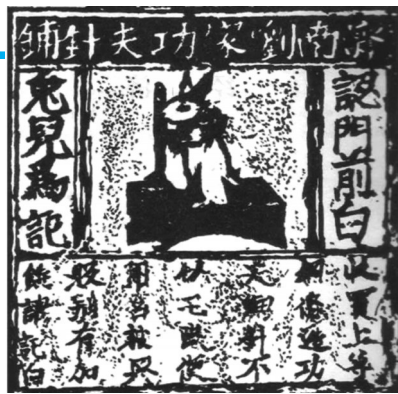 濟南劉家功夫針鋪
認門前白
兔兒為記
收買上等
鋼條造功
夫細針不
使
用
別有加
饒請記白